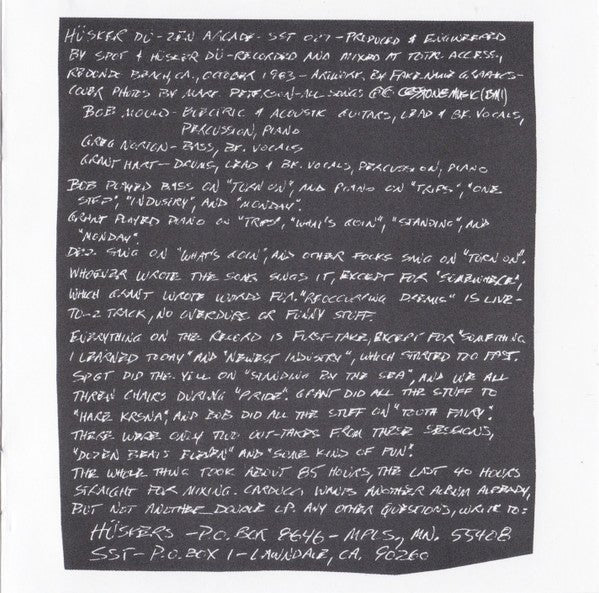 HÜSKER DÜ - ZEN ARCADE - SST 027 - PRODUCED & ENGINEERED
BY SPOT & HÜSKER DÜ - RECORDED AND MIXED AT TOTAL ACCESS,
REDONDO BEACH, CA., OCTOBER 1983 - ARTWORK BY FAKE NAME GRAPHICS -
COVER PHOTOS BY MARK PETERSON - ALL SONGS © CESSTONE MUSIC (BMI)
BOB MOULD - ELECTRIC & ACOUSTIC GUITARS, LEAD & BK. VOCALS,
PERCUSSION, PIANO
GREG NORTON - BASS, BK. VOCALS
GRANT HART - DRUMS, LEAD & BK. VOCALS, PERCUSSION, PIANO
BOB PLAYED BASS ON "TURN ON", AND PIANO ON "TRIPS", "ONE
STEP", "INDUSTRY", AND "MONDAY".
GRANT PLAYED PIANO ON "TRIPS", "WHAT'S GOIN", "STANDING", AND
"MONDAY".
DEZ SING ON "WHAT'S GOIN", AND OTHER FOLKS SING ON "TURN ON".
WHOEVER WROTE THE SONG SINGS IT, EXCEPT FOR "SOMEWHERE",
WHICH GRANT WROTE WORDS FOR. "REOCCURRING DREAMS" IS LIVE-
TO-2 TRACK, NO OVERDUBS OR FUNNY STUFF.
EVERYTHING ON THE RECORD IS FIRST-TAKE, EXCEPT FOR "SOMETHING
I LEARNED TODAY" AND "NEWEST INDUSTRY", WHICH STARTED TOO FAST.
SPOT DID THE YELL ON "STANDING BY THE SEA", AND WE ALL
THREW CHAIRS DURING "PRIDE". GRANT DID ALL THE STUFF TO
"HARE KRSNA", AND BOB DID ALL THE STUFF ON "TOOTH FAIRY".
THERE WERE ONLY TWO OUT-TAKES FROM THESE SESSIONS,
"DOZEN BEATS ELEVEN" AND "SOME KIND OF FUN".
THE WHOLE THING TOOK ABOUT 85 HOURS, THE LAST 40 HOURS
STRAIGHT FOR MIXING. CARDUCCI WANTS ANOTHER ALBUM ALREADY,
BUT NOT ANOTHER DOUBLE LP. ANY OTHER QUESTIONS, WRITE TO:
HÜSKERS - P.O. BOX 8646 - MPLS, MN. 55408
SST - P.O. BOX 1 - LAWNDALE, CA. 90260